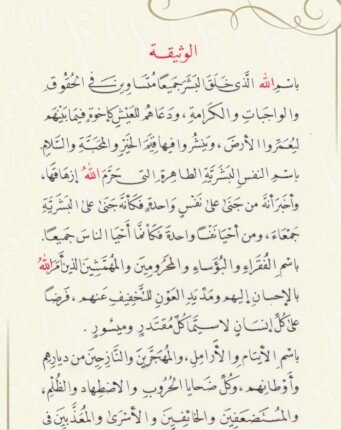 الوثيقة
باسْمِ الله الَّذي خَلَقَ البَشَرَ جَميعًا مُتَسَاوِينَ في الحُقُوقِ
والوَاجِبَاتِ والكَرامةِ، ودَعَاهُم للعَيْشِ كإخوةٍ فيمَا بَيْنَهم
ليُعَمِّروا الأرضَ، ويَنشُروا فيها قِيَمَ الخَيْرِ والمَحَبَّةِ والسَّلامِ
باسْمِ النفسِ البَشَرِيَّةِ الطَّاهِرةِ التي حَرَّمَ اللهُ إزهاقَها،
وأخبَرَ أنَّه مَن جَنَى على نَفْسٍ واحدةٍ فكأنَّه جَنَى على البَشَرِيَّةِ
جَمْعَاءَ، ومَنْ أَحْيَا نَفْسًا واحدةً فكَأنَّما أَحْيَا الناسَ جميعًا.
باسْمِ الفُقَراءِ والبُؤَساءِ والمَحرُومِينَ والمُهمَّشِينَ الذين أَمَرَ اللهُ
بالإحسانِ إليهم ومَدِّ يَدِ العَوْنِ للتَّخفِيفِ عنهم، فرضًا
على كُلِّ إنسانٍ لا سيَّما كُلِّ مُقتَدِرٍ ومَيسُورٍ.
باسْمِ الأيتامِ والأَراملِ، والمُهَجَّرينَ والنَّازِحِينَ من دِيَارِهِم
وأَوْطانِهم، وكُلِّ ضَحايا الحُرُوبِ والاضطِهادِ والظُّلْمِ،
والمُستَضعَفِينَ والخائِفِينَ والأَسْرَى والمُعَذَّبِينَ في